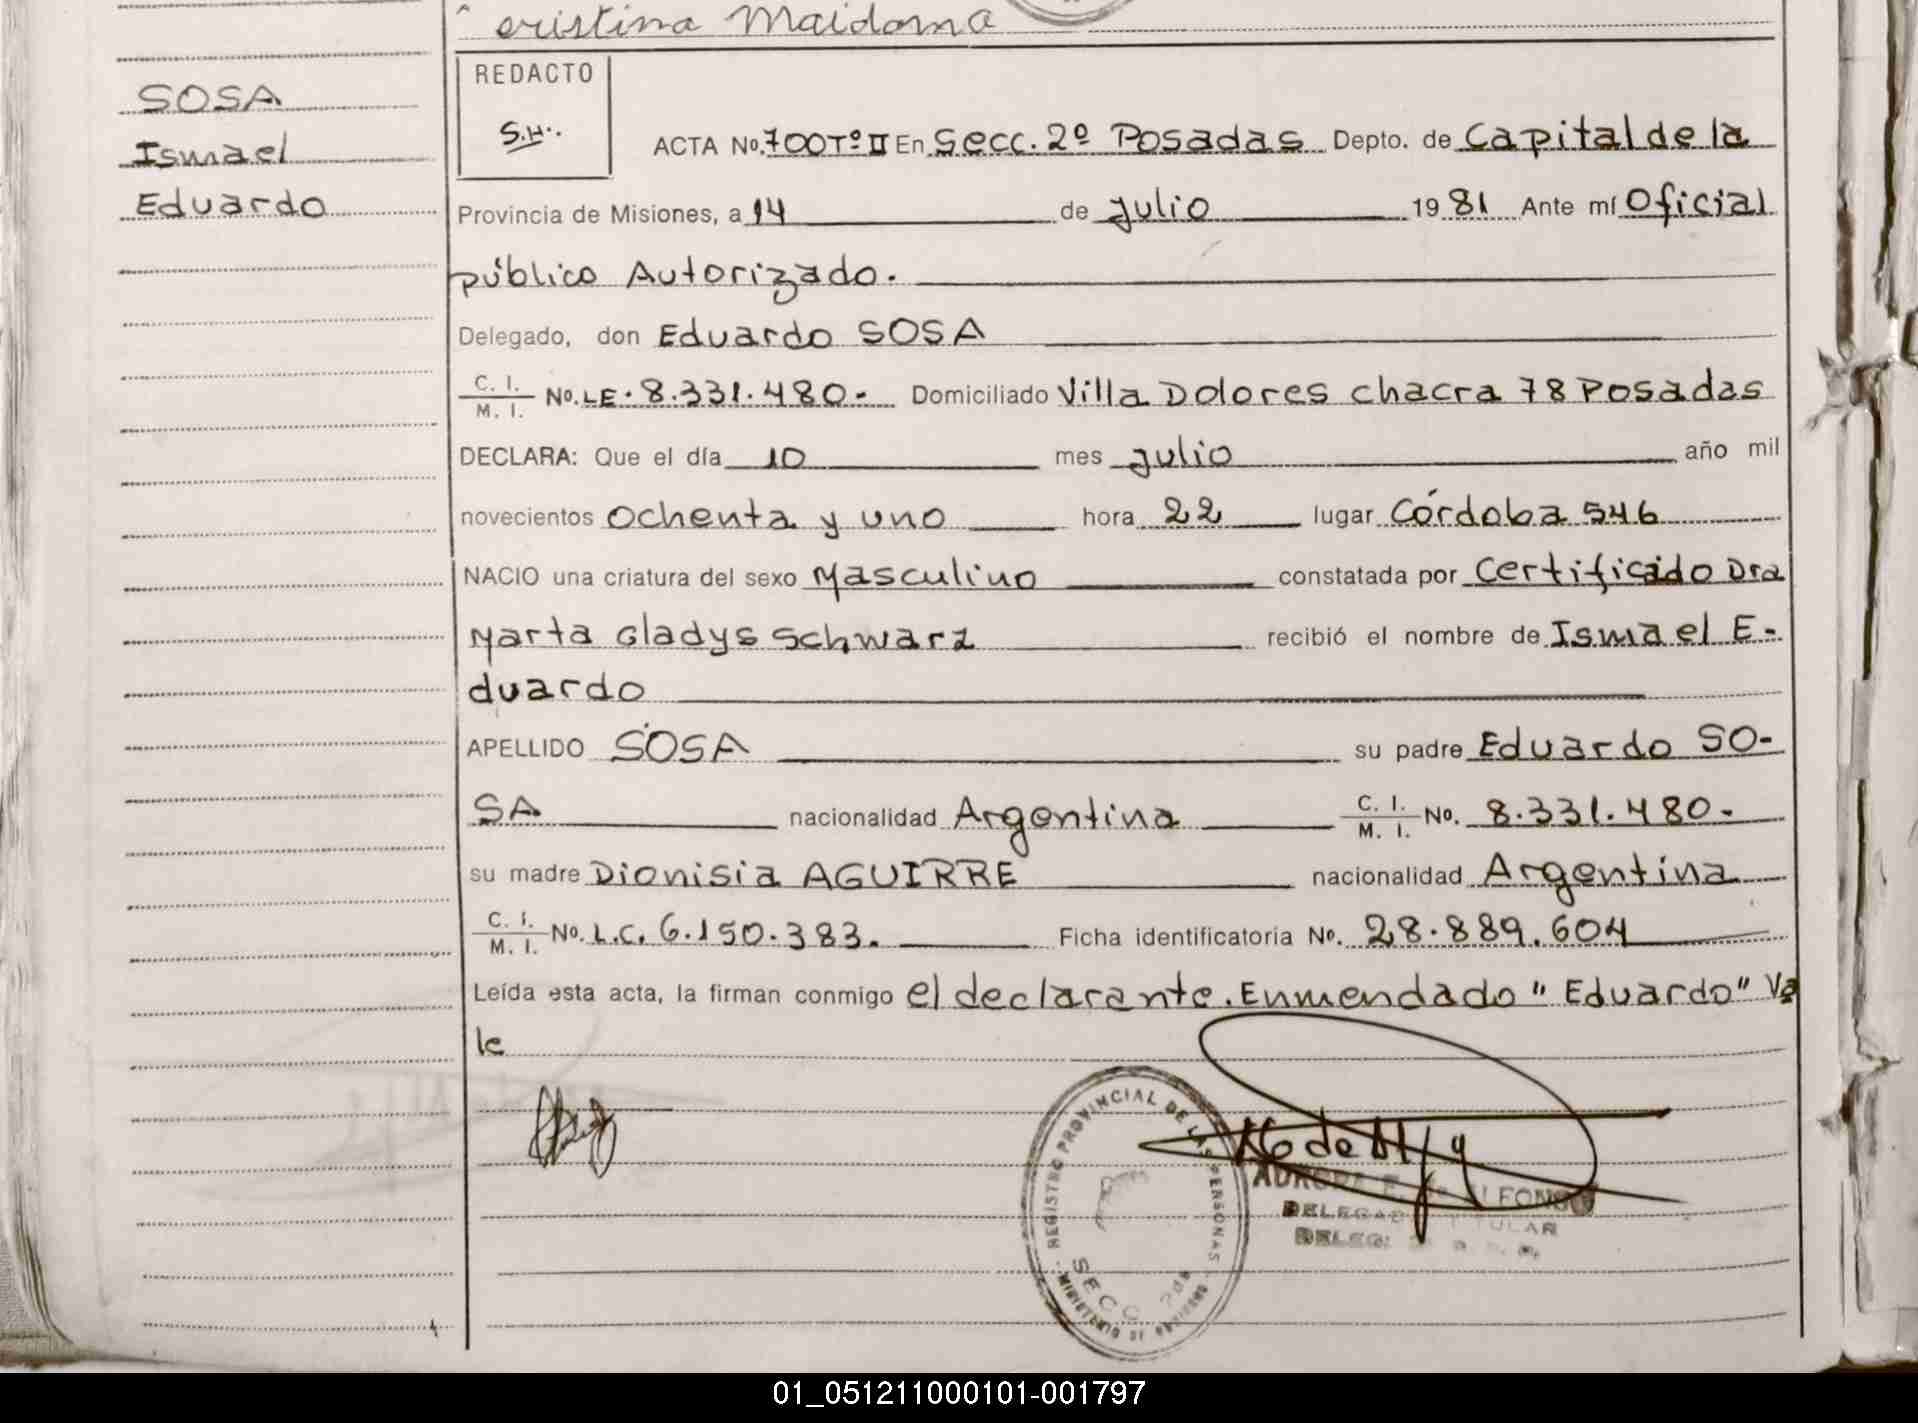 Cristina Maidana
SOSA
Ismael
Eduardo
REDACTO
S.H.
ACTA No. 700 Tº II En Secc. 2º Posadas Depto. de Capital de la
Provincia de Misiones, a 14 de Julio 1981 Ante mí Oficial
público Autorizado.
Delegado, don Eduardo SOSA
C. I. / M. I. No. LE. 8.331.480.- Domiciliado Villa Dolores chacra 78 Posadas
DECLARA: Que el día 10 mes Julio año mil
novecientos ochenta y uno hora 22 lugar Córdoba 546
NACIO una criatura del sexo Masculino constatada por Certificado Dra
Marta Gladys Schwarz recibió el nombre de Ismael E-
duardo
APELLIDO SOSA su padre Eduardo SO-
SA nacionalidad Argentina C. I. / M. I. No. 8.331.480.-
su madre Dionisia AGUIRRE nacionalidad Argentina
C. I. / M. I. No. L.C. 6.150.383. Ficha identificatoria No. 28.889.604
Leída esta acta, la firman conmigo el declarante. Enmendado "Eduardo" Va
le
REGISTRO PROVINCIAL DE LAS PERSONAS
SECC 2da
MINISTERIO DE GOBIERNO
AURORA E. de ALFONSO
DELEGADO TITULAR
01_051211000101-001797